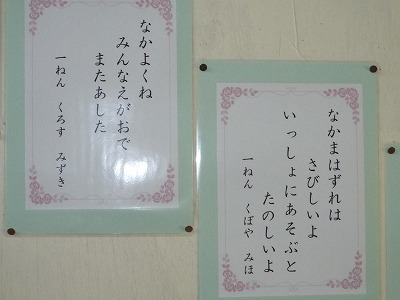 なかまはずれは
さびしいよ
いっしょにあそぶと
たのしいよ
一ねん くぼや みほ
なかよくね
みんなえがおで
またあした
一ねん くろす みずき